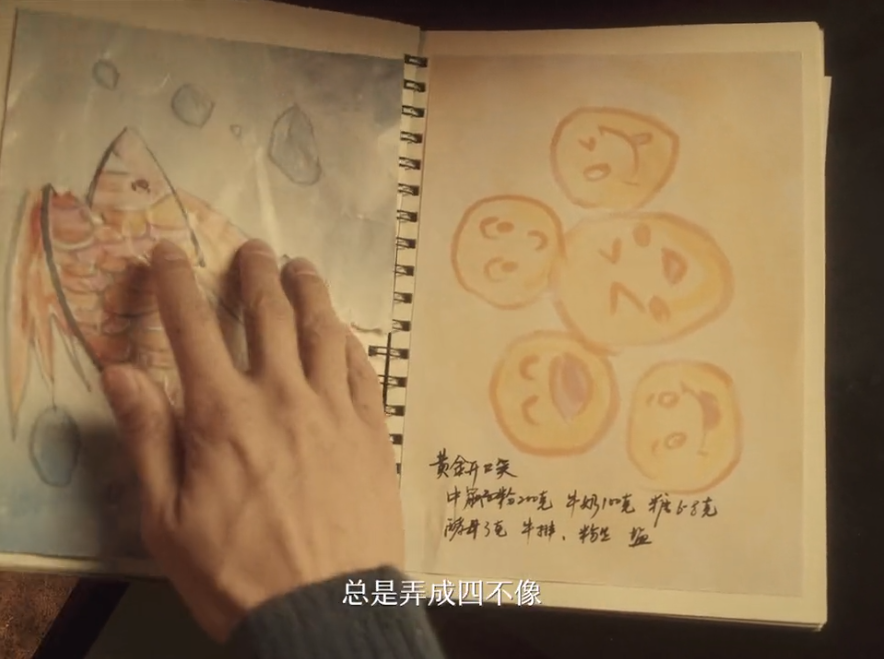 黄金开口笑
中筋面粉200克 牛奶100克 糖5-8克
酵母3克 牛排、粉丝 盐
总是弄成四不像